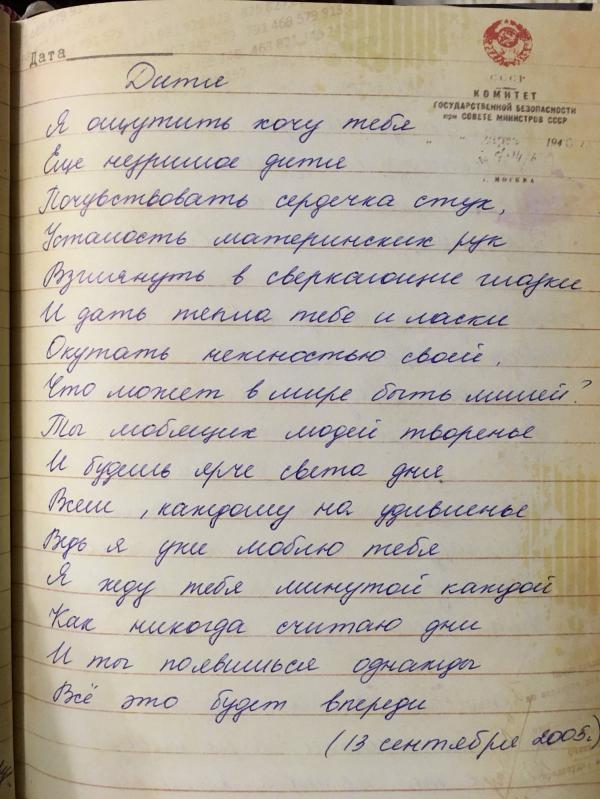 Дата
СССР
КОМИТЕТ
ГОСУДАРСТВЕННОЙ БЕЗОПАСНОСТИ
при СОВЕТЕ МИНИСТРОВ СССР
г. МОСКВА
Дитя
Я ощутить хочу тебя
Еще незримое дитя
Почувствовать сердечка стук,
Усталость материнских рук
Взглянуть в сверкающие глазки
И дать тепла тебе и ласки
Окутать нежностью своей,
Что может в мире быть милей?
Ты любящих людей творенье
И будешь ярче света дня
Всем, каждому на удивленье
Ведь я уже люблю тебя
Я жду тебя минутой каждой
Как никогда считаю дни
И ты появишься однажды
Всё это будет впереди
(13 сентября 2005г.)